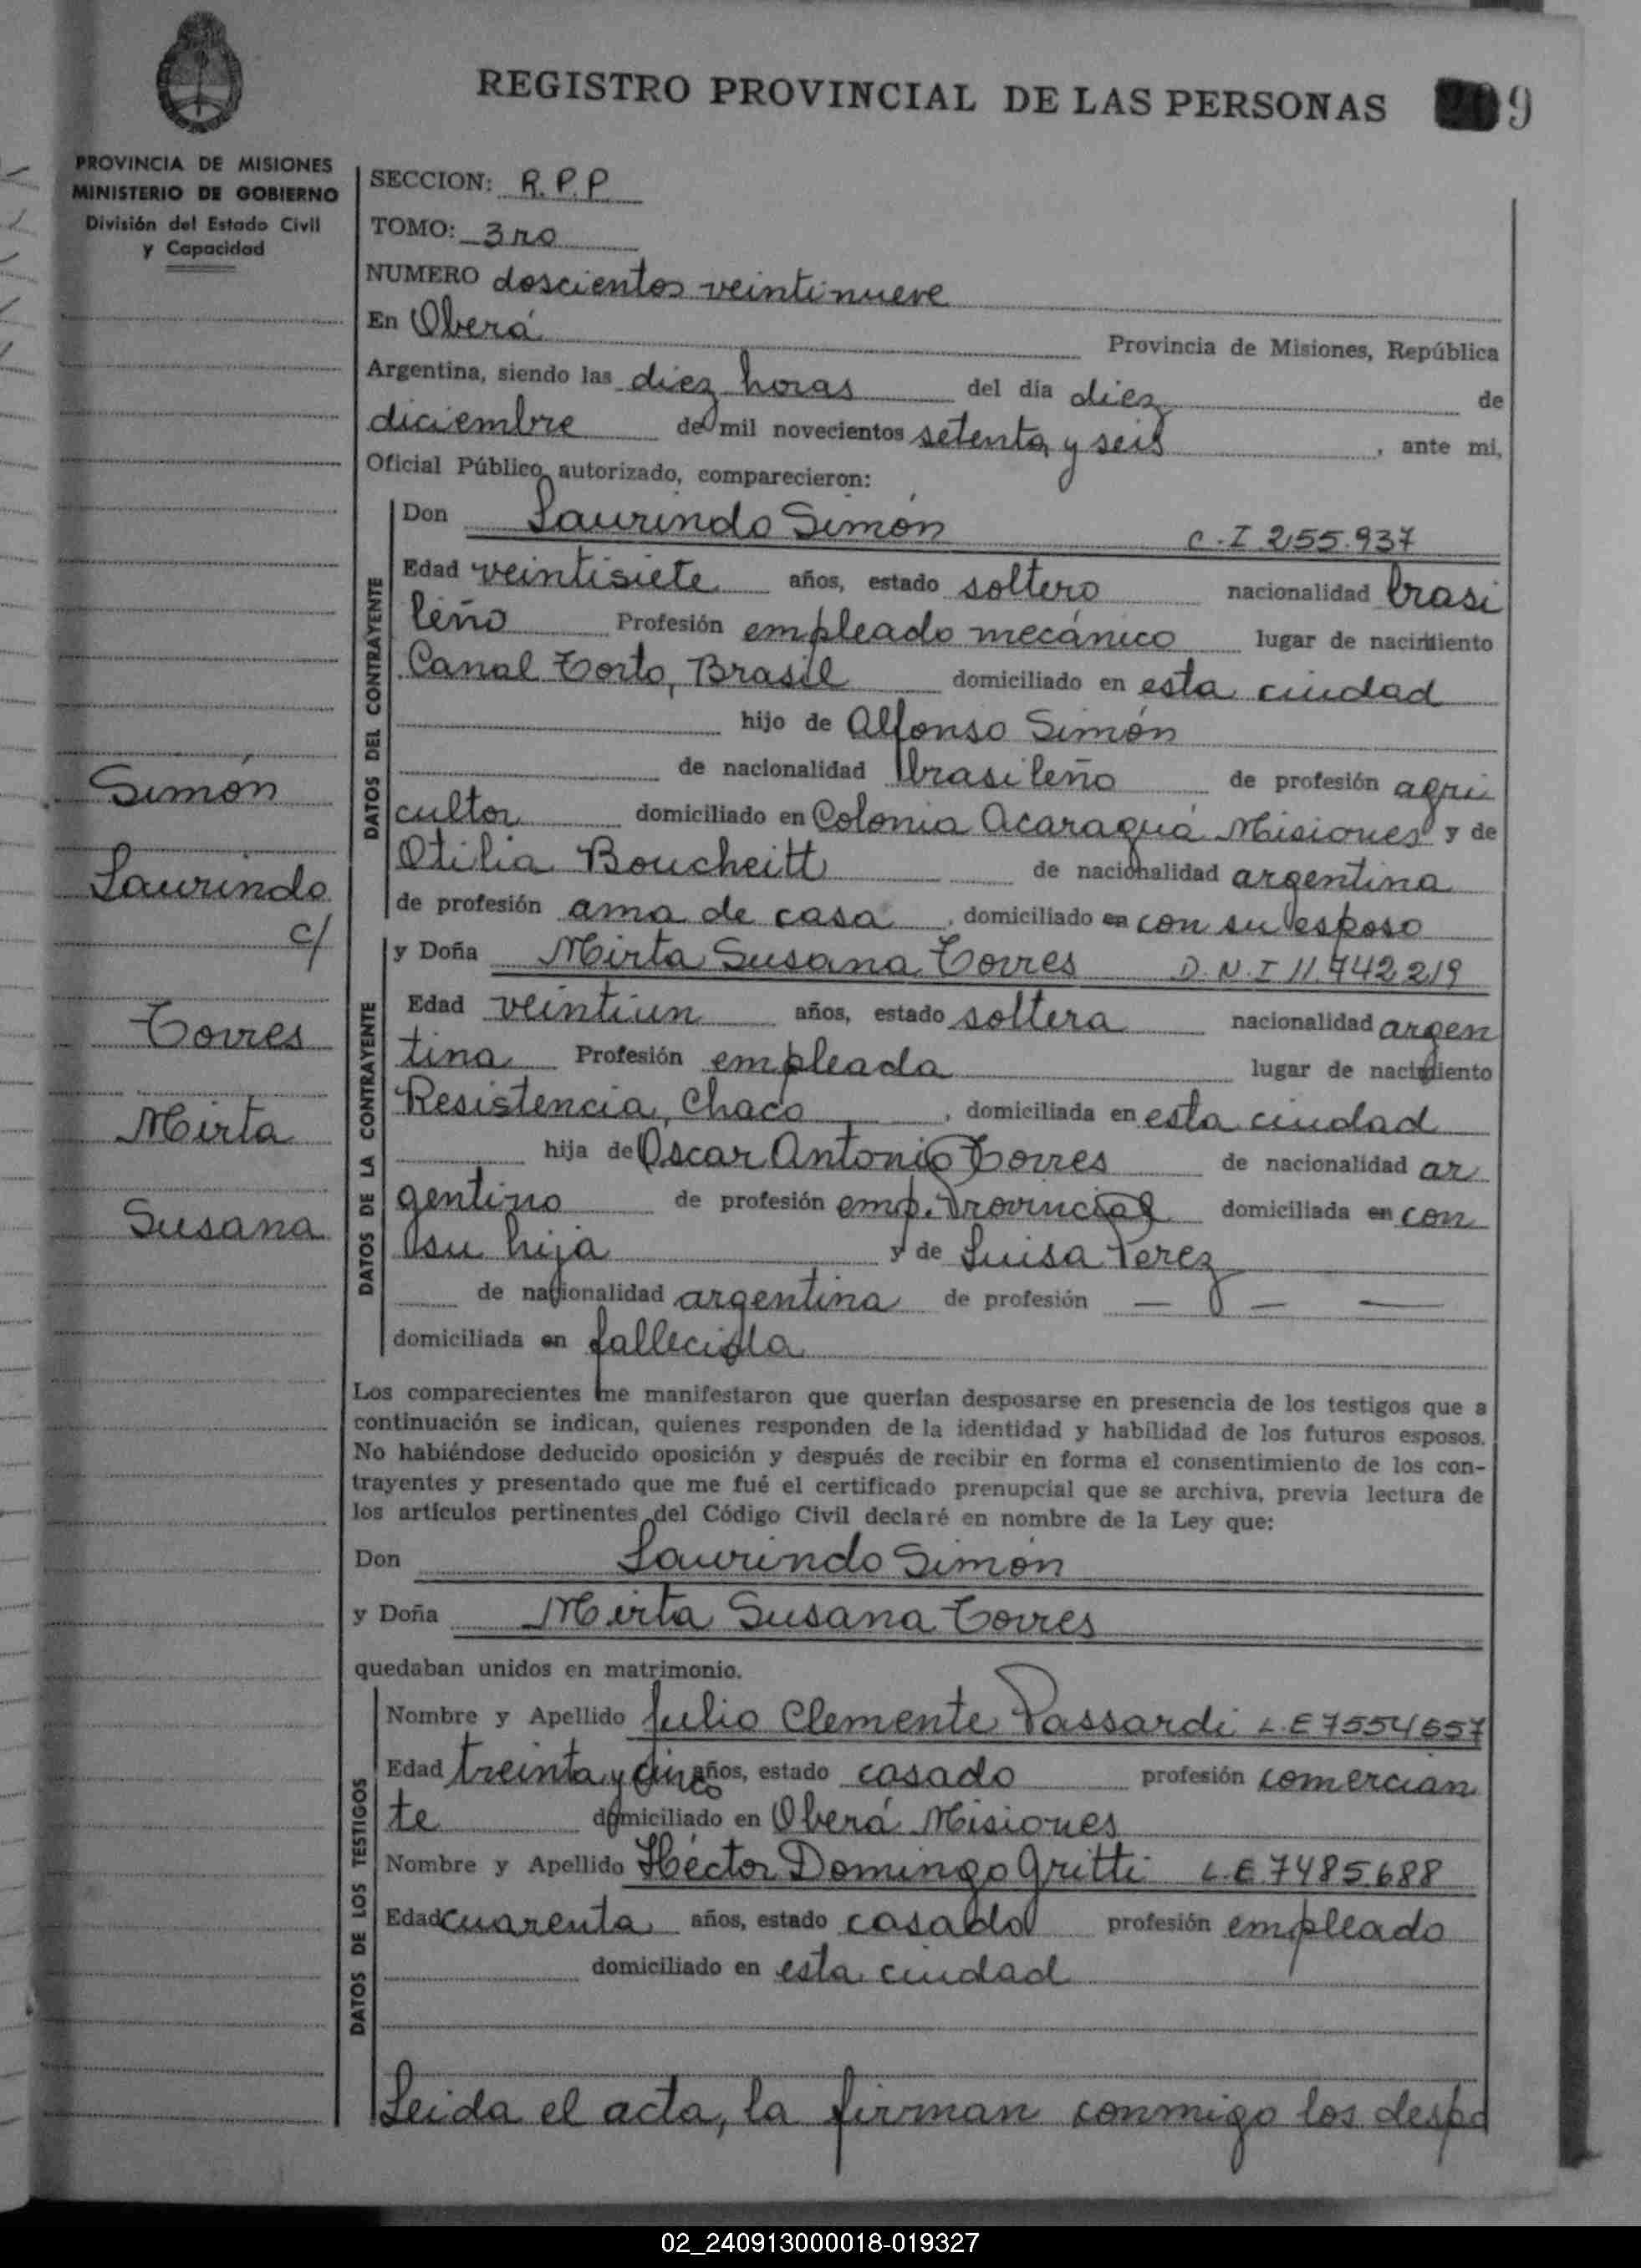 REGISTRO PROVINCIAL DE LAS PERSONAS 9
PROVINCIA DE MISIONES
MINISTERIO DE GOBIERNO
División del Estado Civil
y Capacidad
SECCION: R.P.P.
TOMO: 3ro
NUMERO doscientos veintinueve
En Oberá Provincia de Misiones, República
Argentina, siendo las diez horas del día diez de
diciembre de mil novecientos setenta y seis, ante mi,
Oficial Público autorizado, comparecieron:
DATOS DEL CONTRAYENTE
Don Laurindo Simón C.I 255.937
Edad veintisiete años, estado soltero nacionalidad brasi
leño Profesión empleado mecánico lugar de nacimiento
Canal Torto, Brasil domiciliado en esta ciudad
hijo de Alfonso Simón
de nacionalidad brasileño de profesión agri
cultor domiciliado en Colonia Acaraguá Misiones y de
Otilia Boucheitt de nacionalidad argentina
de profesión ama de casa, domiciliado en con su esposo
Simón
Laurindo
c/
Torres
Mirta
Susana
DATOS DE LA CONTRAYENTE
y Doña Mirta Susana Torres D.N.I 11.742.219
Edad veintiun años, estado soltera nacionalidad argen
tina Profesión empleada lugar de nacimiento
Resistencia, Chaco, domiciliada en esta ciudad
hija de Oscar Antonio Torres de nacionalidad ar
gentino de profesión emp. Provincial domiciliada en con
su hija y de Luisa Perez
de nacionalidad argentina de profesión — — —
domiciliada en fallecida
Los comparecientes me manifestaron que querían desposarse en presencia de los testigos que a
continuación se indican, quienes responden de la identidad y habilidad de los futuros esposos.
No habiéndose deducido oposición y después de recibir en forma el consentimiento de los con-
trayentes y presentado que me fué el certificado prenupcial que se archiva, previa lectura de
los artículos pertinentes del Código Civil declaré en nombre de la Ley que:
Don Laurindo Simón
y Doña Mirta Susana Torres
quedaban unidos en matrimonio.
DATOS DE LOS TESTIGOS
Nombre y Apellido Julio Clemente Passardi L.E 7554557
Edad treinta y cinco años, estado casado profesión comercian
te domiciliado en Oberá Misiones
Nombre y Apellido Héctor Domingo Gritti L.E. 7485.688
Edad cuarenta años, estado casado profesión empleado
domiciliado en esta ciudad
Leida el acta, la firman conmigo los despo
02_240913000018-019327